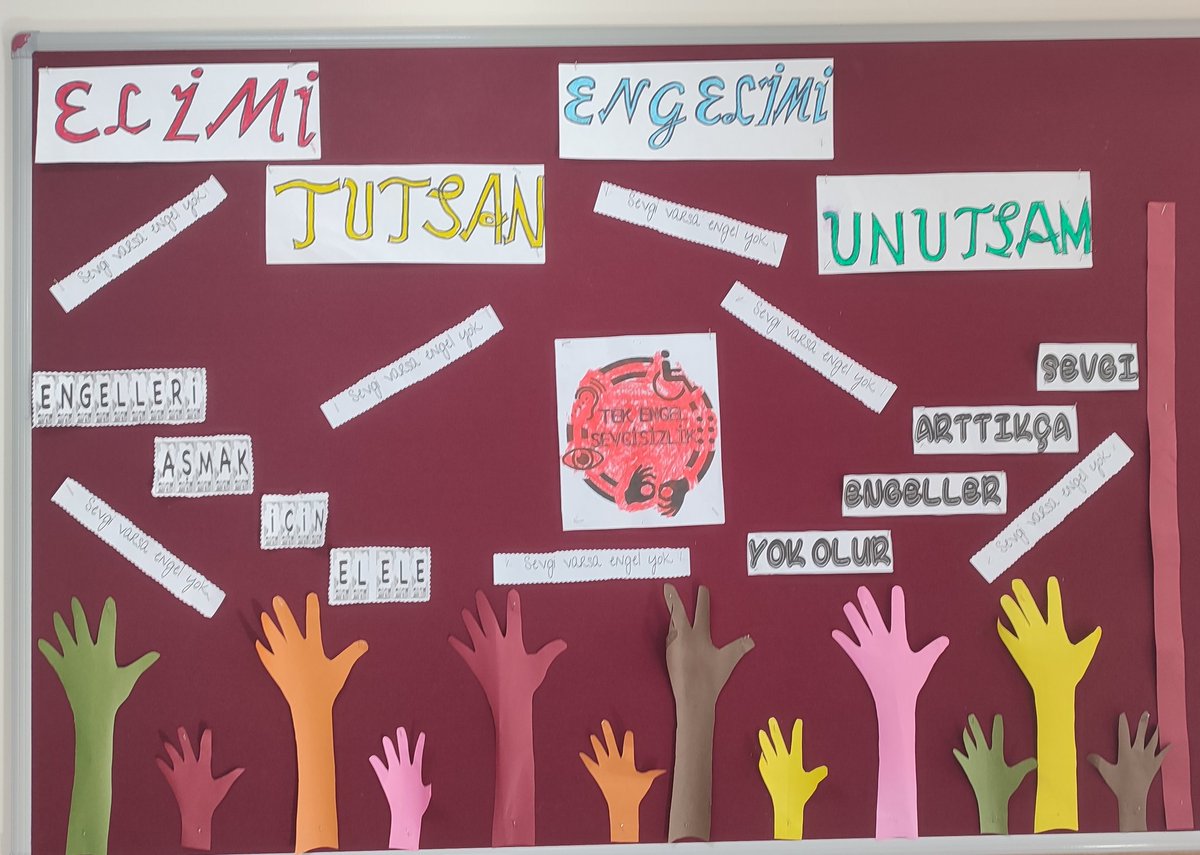 ELİMİ
TUTSAN
ENGELİMİ
UNUTSAM
Sevgi varsa engel yok
Sevgi varsa engel yok!
Sevgi varsa engel yok!
! Sevgi varsa engel yok!
ENGELLERİ
AŞMAK
İÇİN
EL ELE
TEK ENGEL
SEVGİSİZLİK
SEVGI
ARTTIKÇA
ENGELLER
YOK OLUR
! Sevgi varsa engel yok!
! Sevgi varsa engel yok!
! Sevgi varsa engel yok!